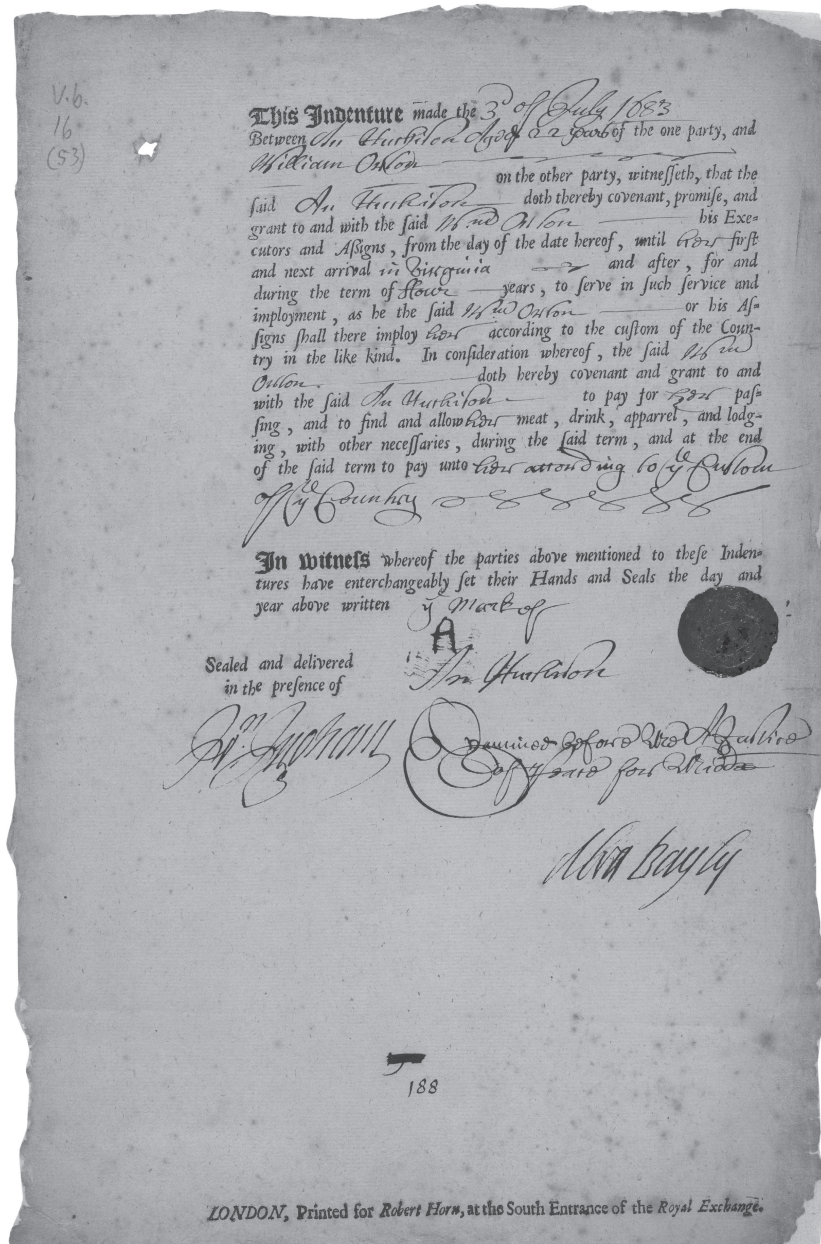 V.b.
16
(53)
This Indenture made the 3d of July 1683
Between An Hutkison Aged 22 years of the one party, and
William Orlon
on the other party, witneſſeth, that the
ſaid An Hutkison doth thereby covenant, promiſe, and
grant to and with the ſaid Wm Orlon his Exe=
cutors and Aſſigns, from the day of the date hereof, until her firſt
and next arrival in Virginia and after, for and
during the term of ffour years, to ſerve in ſuch ſervice and
imployment, as he the ſaid Wm Orlon or his Aſ=
ſigns ſhall there imploy her according to the cuſtom of the Coun=
try in the like kind. In conſideration whereof, the ſaid Wm
Orlon. doth hereby covenant and grant to and
with the ſaid An Hutkison to pay for her paſ=
ſing, and to find and allow her meat, drink, apparrel, and lodg=
ing, with other neceſſaries, during the ſaid term, and at the end
of the ſaid term to pay unto her according to ye Custom
of ye Country
In witneſs whereof the parties above mentioned to theſe Inden=
tures have enterchangeably ſet their Hands and Seals the day and
year above written ye Mark of
A
Sealed and delivered
in the preſence of
An Hutkison
Examined before Mee A Justice
of Peace for Middx
Bayly
188
LONDON, Printed for Robert Horn, at the South Entrance of the Royal Exchange.